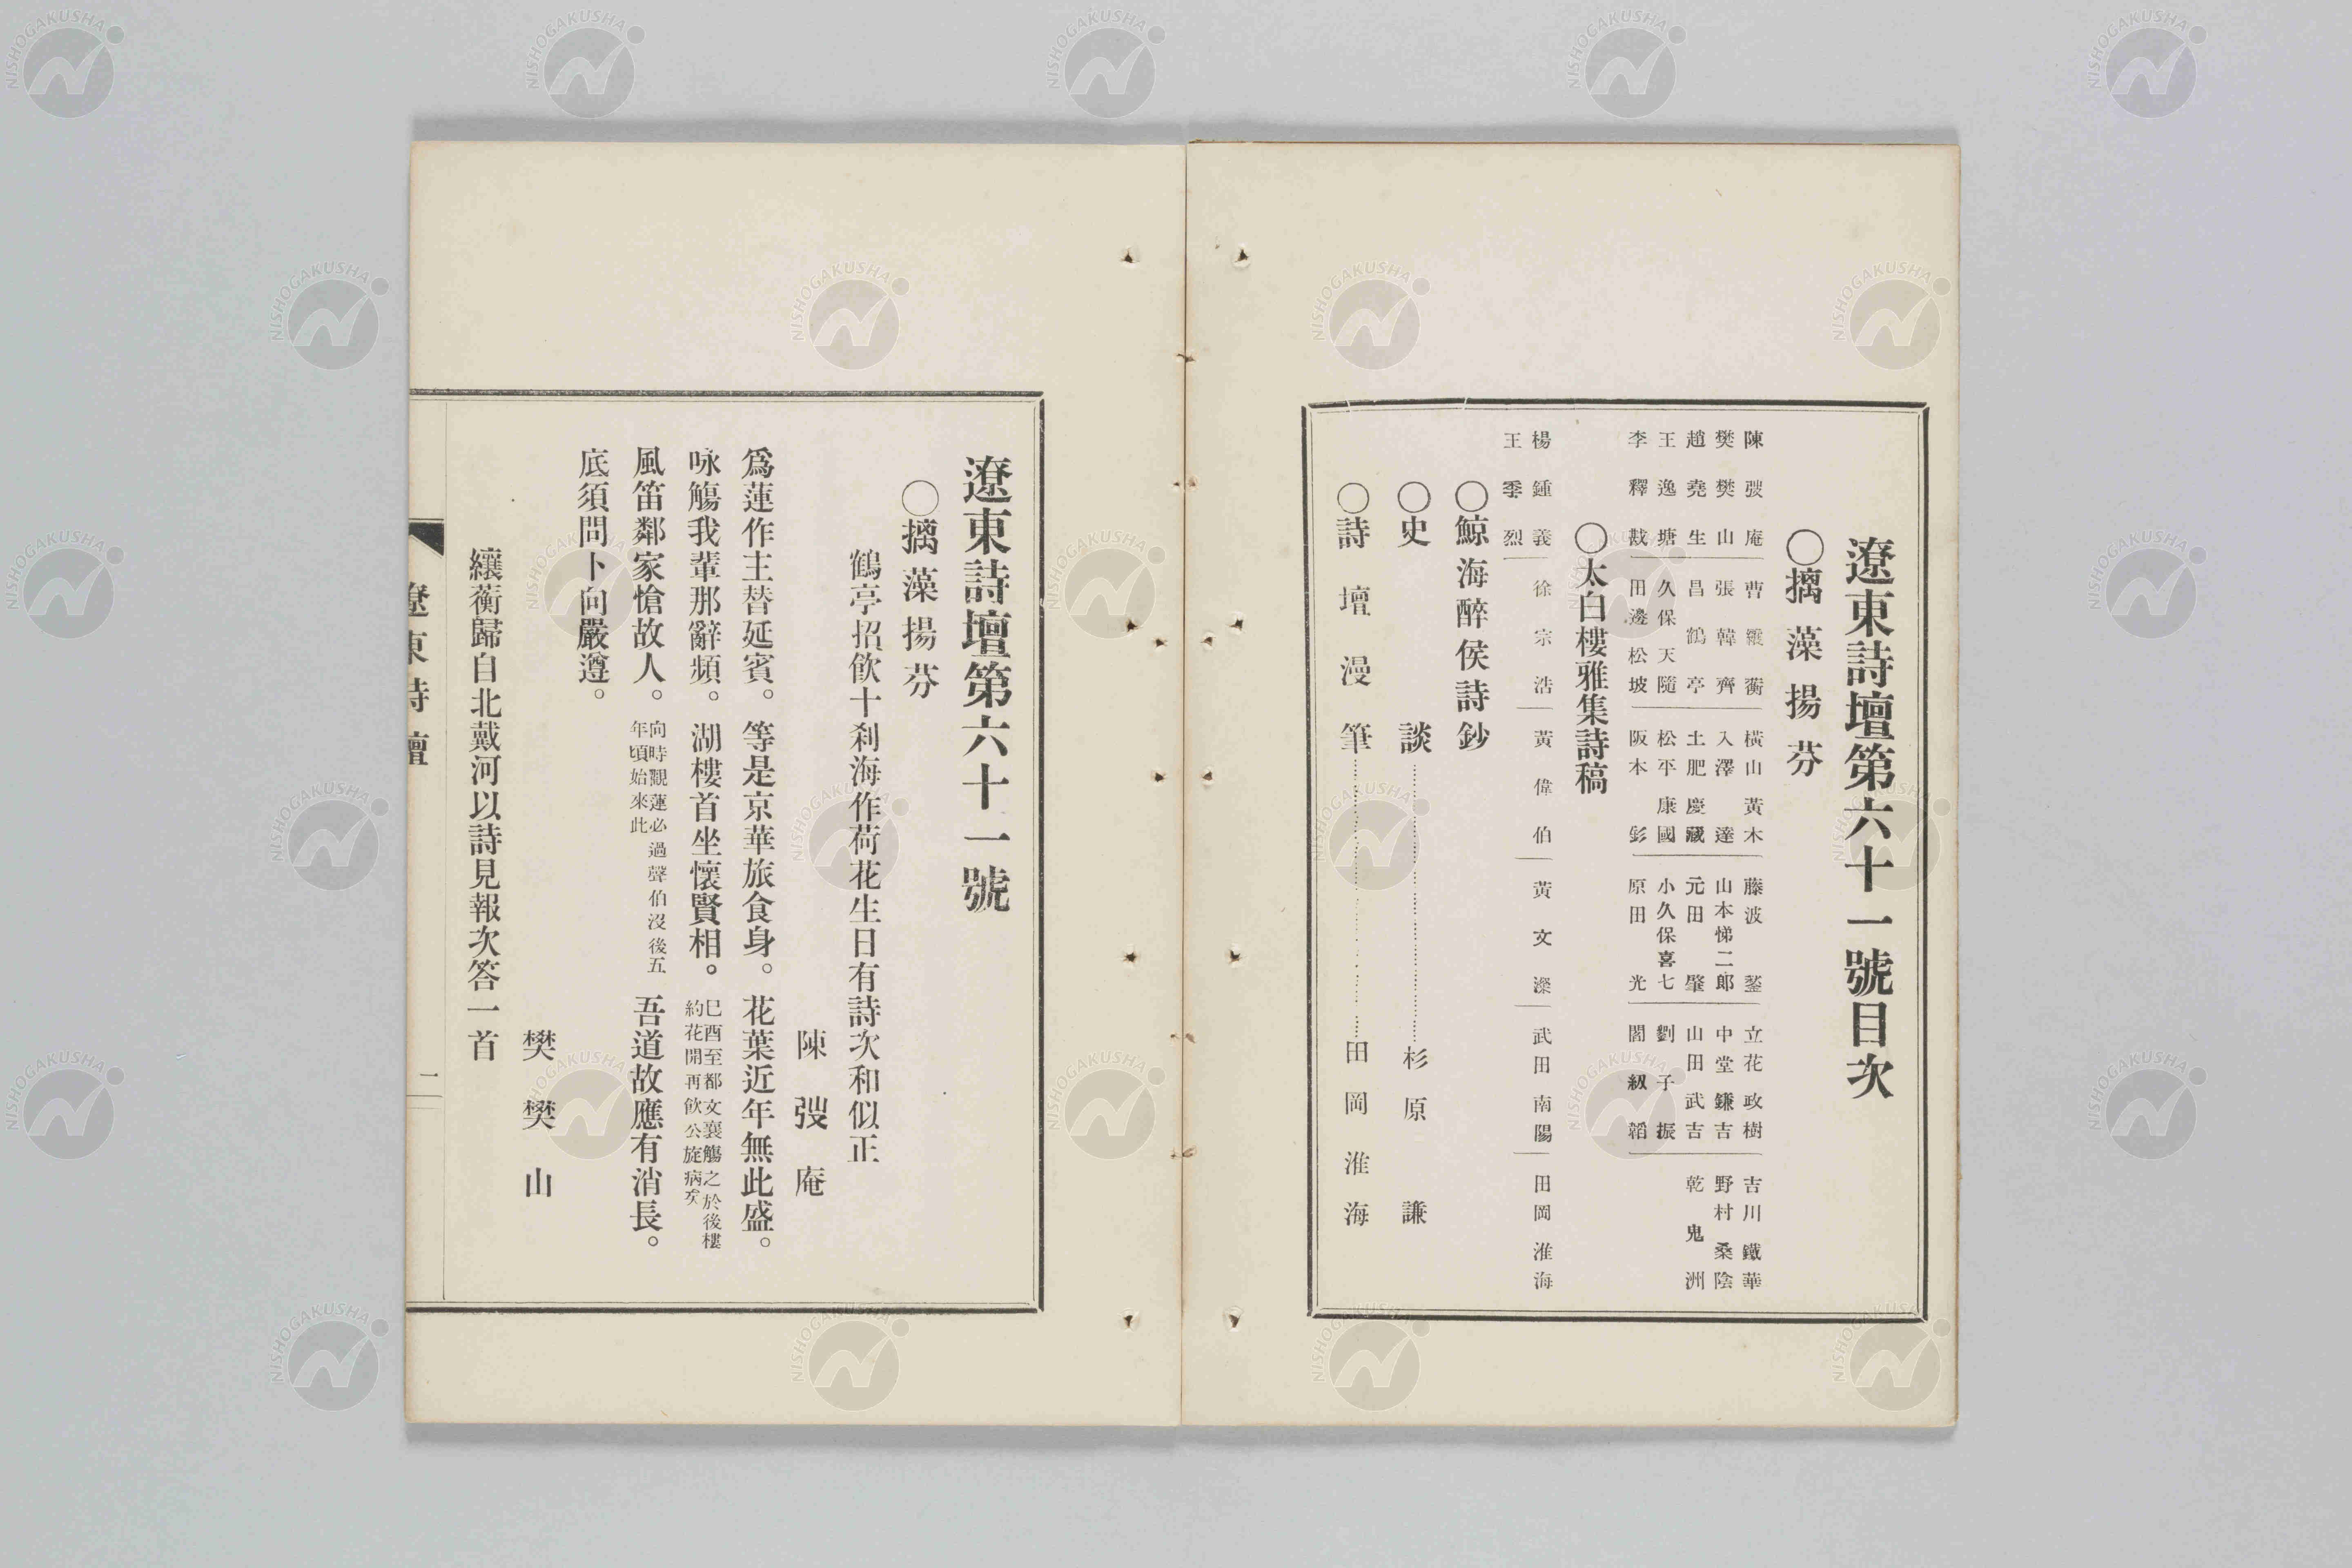 遼東詩壇第六十一號目次
○摛藻揚芬
陳弢庵 曹纕蘅 橫山黃木 藤波鋻 立花政樹 吉川鐵華
樊樊山 張韓齊 入澤達 山本悌二郎 中堂鎌吉 野村桑陰
趙堯生 昌鶴亭 土肥慶藏 元田肇 山田武吉 乾鬼洲
王逸塘 久保天隨 松平康國 小久保喜七 劉子振
李釋戡 田邊松坡 阪本釤 原田光 閻紉韜
○太白樓雅集詩稿
楊鍾義 徐宗浩 黃偉伯 黃文濴 武田南陽 田岡淮海
王季烈
○鯨海醉侯詩鈔
○史談 杉原謙
○詩壇漫筆 田岡淮海
遼東詩壇第六十一號
○摛藻揚芬
鶴亭招飲十刹海作荷花生日有詩次和似正
陳弢庵
爲蓮作主替延賓。等是京華旅食身。花葉近年無此盛。
咏觴我輩那辭頻。湖樓首坐懷賢相。巳酉至都文襄觴之於後樓約花開再飲公旋病矣
風笛鄰家愴故人。向時觀蓮必過聲伯沒後五年頃始來此 吾道故應有消長。
底須問卜向嚴遵。
樊樊山
纕蘅歸自北戴河以詩見報次答一首
遼東詩壇
一
NISHOGAKUSHA